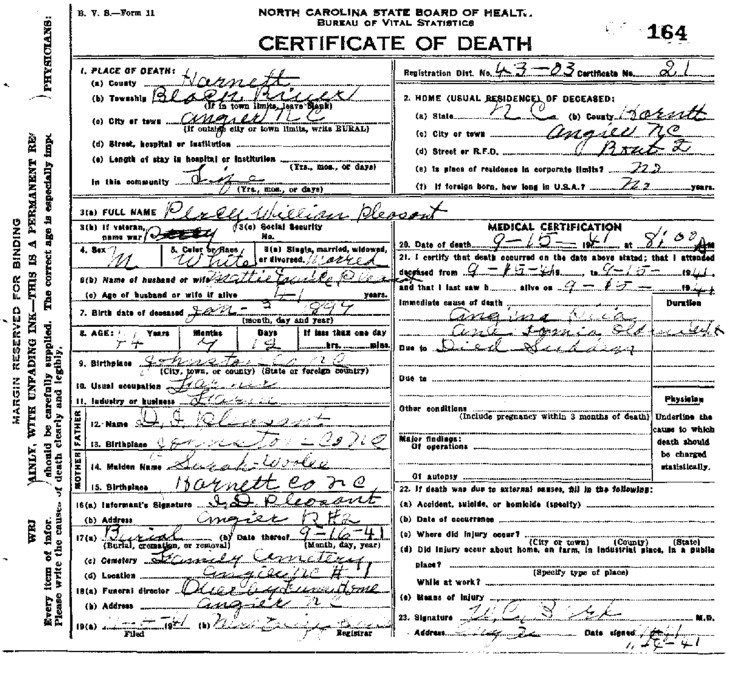 B. V. S.—Form 11
NORTH CAROLINA STATE BOARD OF HEALT..
BUREAU OF VITAL STATISTICS
164
CERTIFICATE OF DEATH
1. PLACE OF DEATH:
(a) County Harnett
(b) Township Black River
(If in town limits, leave blank)
(c) City or town Angier N C
(If outside city or town limits, write RURAL)
(d) Street, hospital or institution
(e) Length of stay in hospital or institution
(Yrs., mos., or days)
In this community Life
(Yrs., mos., or days)
Registration Dist. No. 43-03 Certificate No. 21
2. HOME (USUAL RESIDENCE) OF DECEASED:
(a) State N C (b) County Harnett
(c) City or town Angier NC
(d) Street or R.F.D. Rout 2
(e) Is place of residence in corporate limits? No
(f) If foreign born, how long in U.S.A.? No years.
3(a) FULL NAME Percy William Pleasant
3(b) If veteran, name war
3(c) Social Security No.
4. Sex M
5. Color or Race White
6(a) Single, married, widowed, or divorced.
6(b) Name of husband or wife Mattie
(c) Age of husband or wife if alive years.
7. Birth date of deceased Jan - 3
(month, day and year)
8. AGE: Years Months Days If less than one day
hrs. mins.
9. Birthplace Johnston Co NC
(City, town, or county) (State or foreign country)
10. Usual occupation Farmer
11. Industry or business Farm
FATHER
12. Name D. I. Pleasant
13. Birthplace Johnston - Co NC
MOTHER
14. Maiden Name Sarah
15. Birthplace Harnett Co NC
16(a) Informant's Signature Pleasant
(b) Address Angier R#2
17(a) Burial (b) Date thereof 9-16-41
(Burial, cremation, or removal) (Month, day, year)
(c) Cemetery Family Cemetery
(d) Location Angier NC #1
18(a) Funeral director
(b) Address Angier N C
19(a) (b)
Filed Registrar
MEDICAL CERTIFICATION
20. Date of death 9-15-1941 at 8:00
21. I certify that death occurred on the above date stated; that I attended
deceased from 9-15-, to 9-15-1941,
and that I last saw h alive on 9-15-1941
Immediate cause of death Duration
Angina
Due to Died Sudden
Due to
Other conditions
(Include pregnancy within 3 months of death)
Major findings:
Of operations
Of autopsy
Physician
Underline the cause to which death should be charged statistically.
22. If death was due to external causes, fill in the following:
(a) Accident, suicide, or homicide (specify)
(b) Date of occurrence
(c) Where did injury occur?
(City or town) (County) (State)
(d) Did injury occur about home, on farm, in industrial place, in a public
place?
(Specify type of place)
While at work?
(e) Means of Injury
23. Signature M.D.
Address Date signed
MARGIN RESERVED FOR BINDING
WRI AINLY, WITH UNFADING INK—THIS IS A PERMANENT RE
Every item of infor. should be carefully supplied. The correct age is especially imp. PHYSICIANS:
Please write the cause of death clearly and legibly.